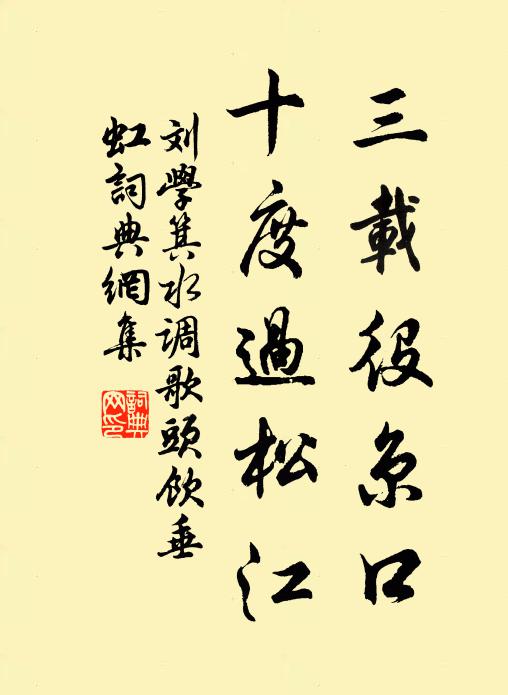 三載役京口
十度過松江
刘學箕水调歌頭飲垂
虹詞典網集
詞典
网印